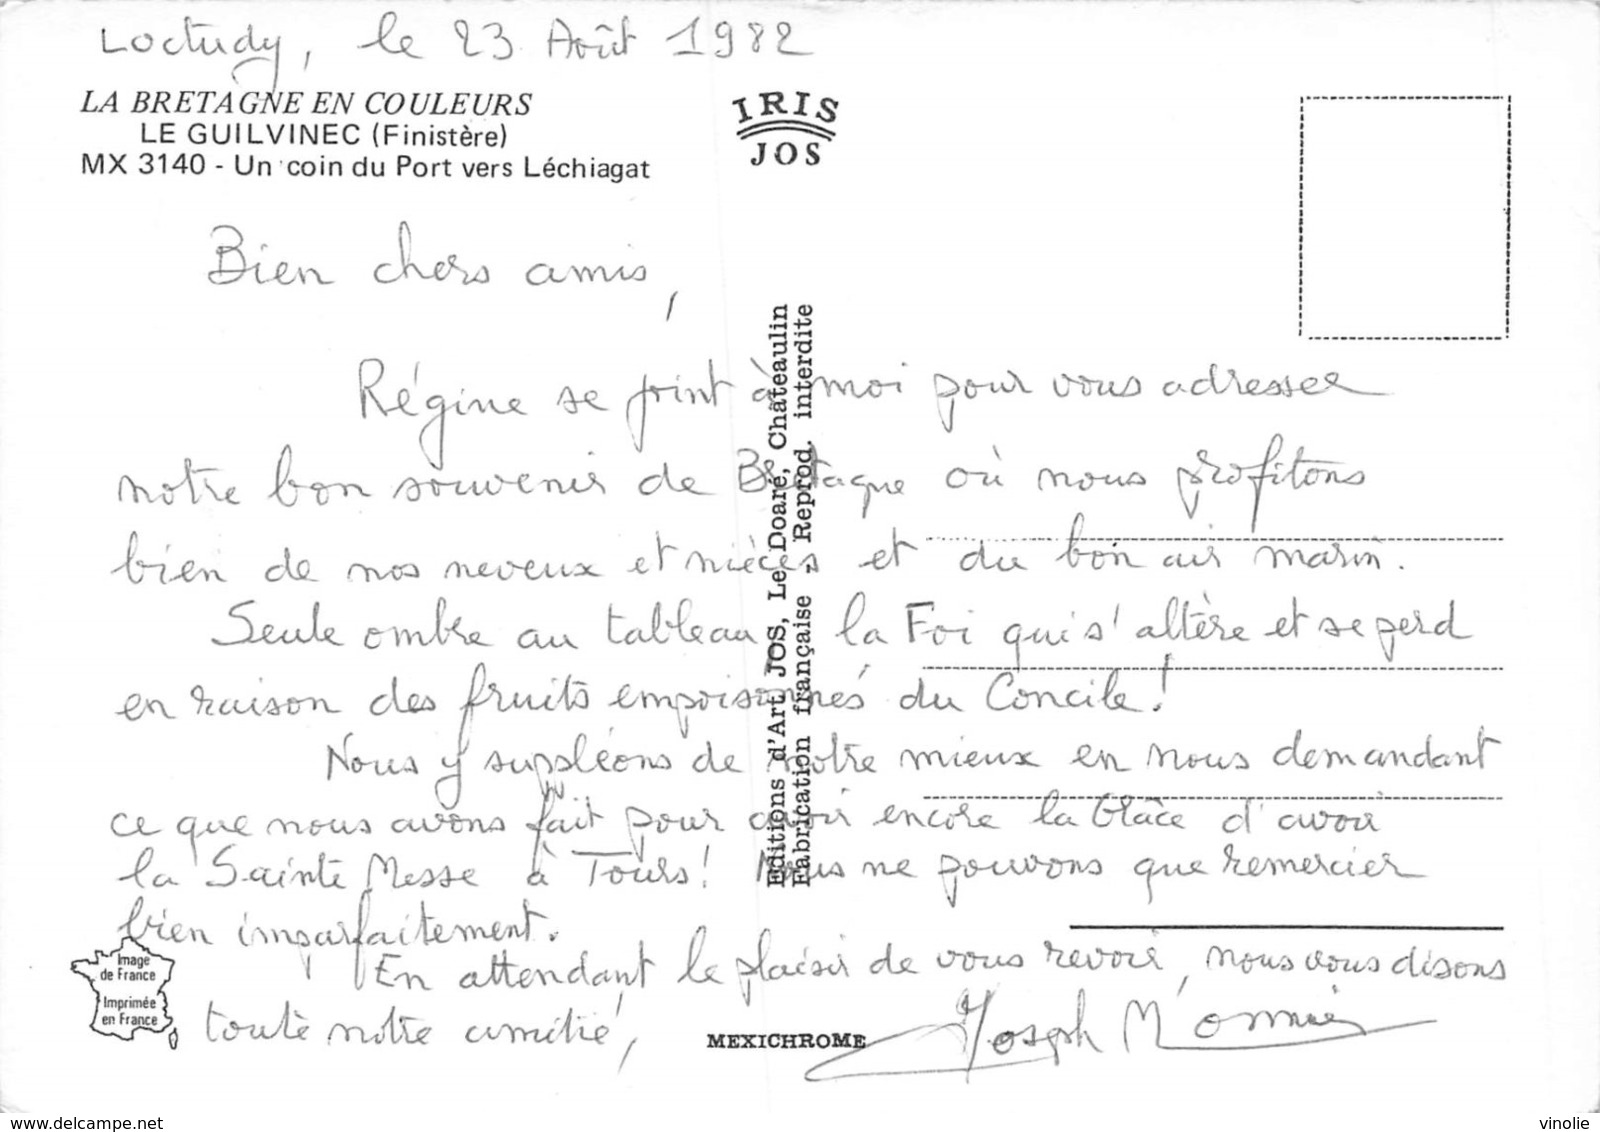 Loctudy, le 23 Août 1982
LA BRETAGNE EN COULEURS
LE GUILVINEC (Finistère)
MX 3140 - Un coin du Port vers Léchiagat
IRIS
JOS
Bien chers amis,
Régine se joint à moi pour vous adresser
notre bon souvenir de Bretagne où nous profitons
bien de nos neveux et nièces et du bon air marin.
Seule ombre au tableau, la Foi qui s'altère et se perd
en raison des fruits empoisonnés du Concile!
Nous y suppléons de notre mieux en nous demandant
ce que nous avons fait pour avoir encore la Grâce d'avoir
la Sainte Messe à Tours! Nous ne pouvons que remercier
bien imparfaitement.
En attendant le plaisir de vous revoir, nous vous disons
toute notre amitié,
Joseph
Editions d'Art JOS, Le Doaré, Châteaulin
Fabrication française - Reprod. interdite
Image
de France
Imprimée
en France
MEXICHROME
delcampe.net
vinolie